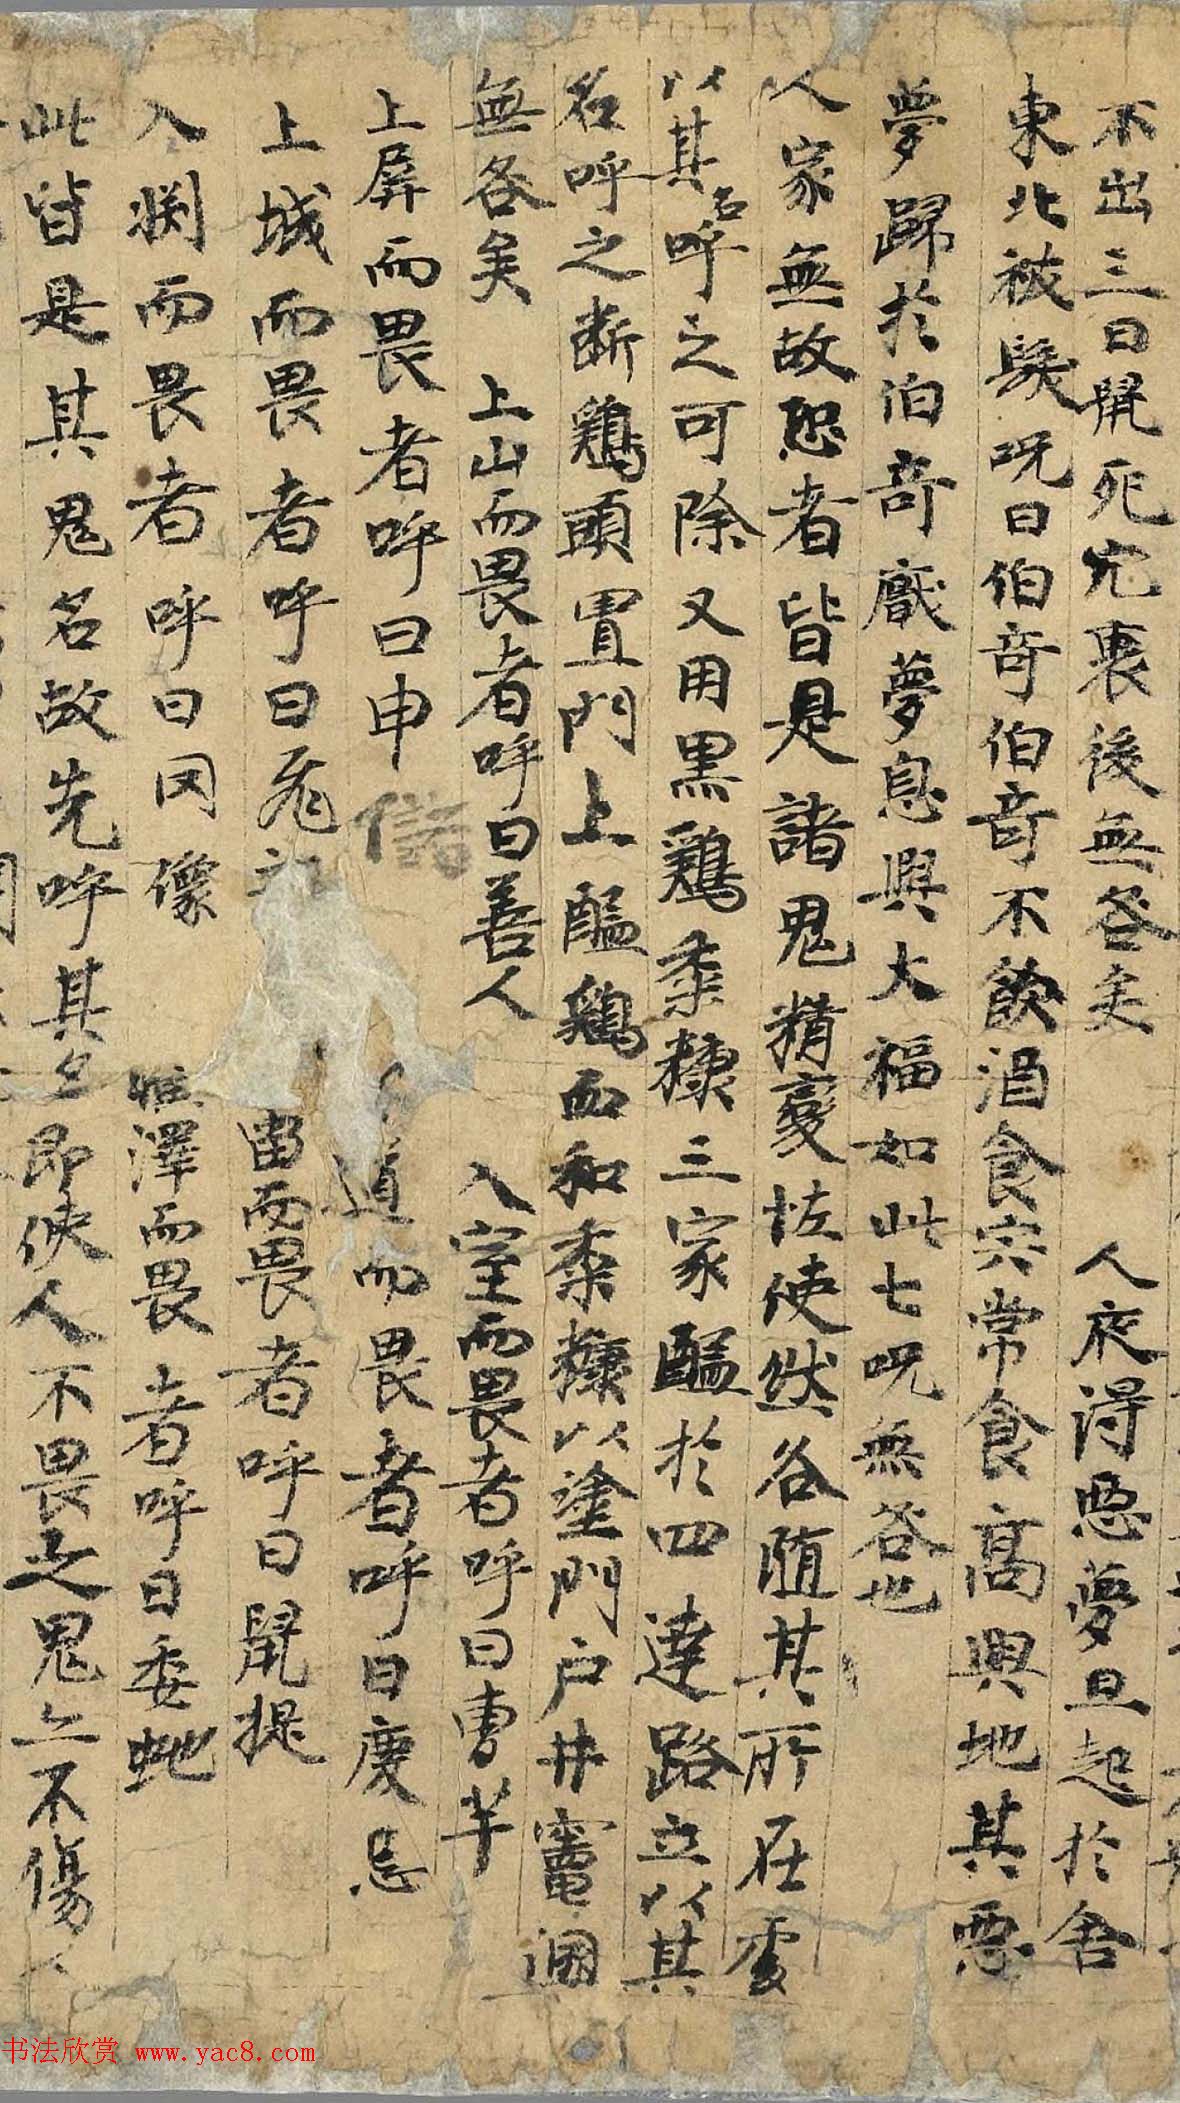 不出三日鼠死穴裏後無咎矣 人夜得惡夢旦起於舍
東北被髮呪曰伯奇伯奇不飲酒食宍常食高興地其惡
夢歸於伯奇厭夢息興大福如此七呪無咎也
人家無故恐者皆是諸鬼精變怪使然各随其所在處
以其名呼之可除又用黑鷄黍糠三家醢於四達路立以其
名呼之断鷄頭置門上醢鷄血和黍糠以塗門户井竈溷
無咎矣 上山而畏者呼曰善人 入室而畏者呼曰曺羊
上屏而畏者呼曰申 道而畏者呼曰慶忌
上城而畏者呼曰飛 而畏者呼曰鼠提
入渕而畏者呼曰罔像 澤而畏者呼曰委虵
此皆是其鬼名故先呼其名即使人不畏之鬼亡不傷
书法欣赏 www.yac8.com